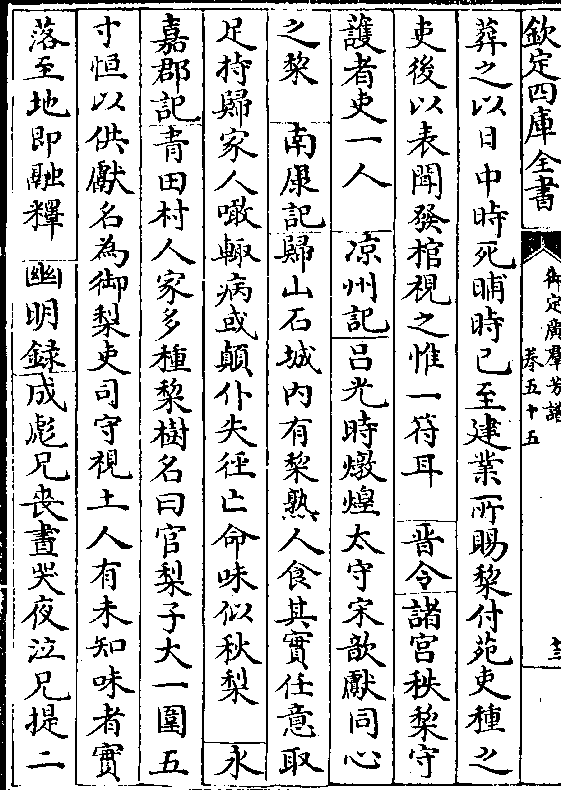 欽定四庫全書
御定廣羣芳譜
卷五十五
十三
葬之以日中時死晡時已至建業所賜棃付苑吏種之
吏後以表聞發棺視之惟一符耳　晋令諸宫秩棃守
護者吏一人　凉州記吕光時燉煌太守宋歆獻同心
之棃　南康記歸山石城内有棃熟人食其實任意取
足持歸家人噉輙病或顛仆失徑亡命味似秋梨　永
嘉郡記青田村人家多種棃樹名曰官梨子大一圍五
寸恒以供獻名為御梨吏司守視土人有未知味者實
落至地即融釋　幽明録成彪兄喪晝哭夜泣兄提二